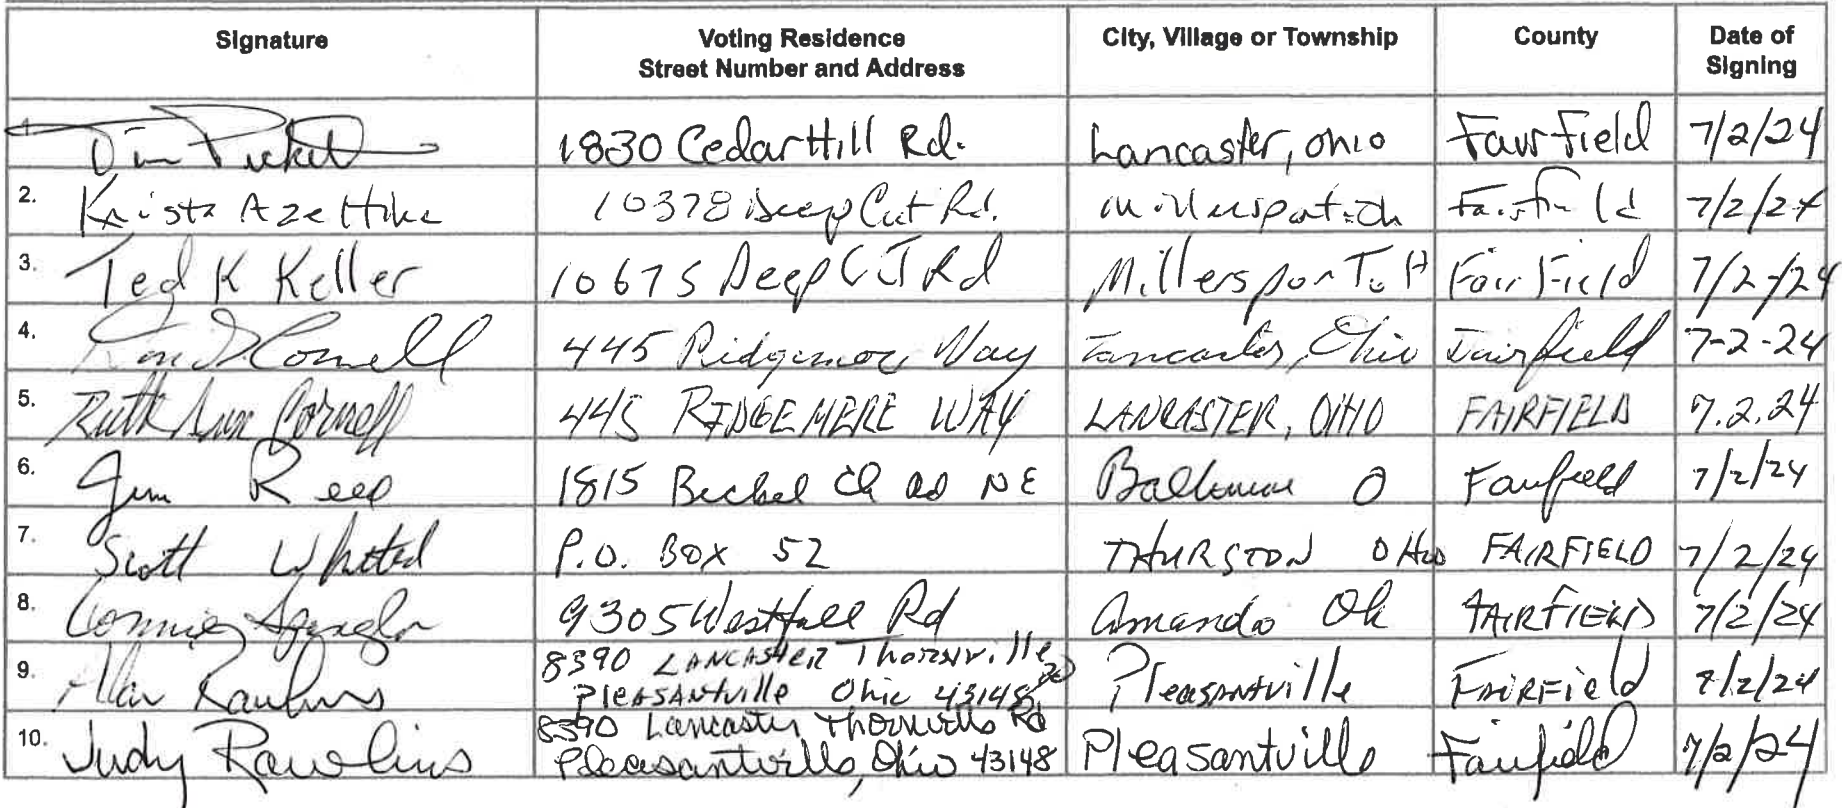 Signature Voting Residence City, Village or Township County Date of
Street Number and Address Signing
1. Tim Pickett 1830 Cedar Hill Rd. Lancaster, Ohio Fairfield 7/2/24
2. Krista Azettine 10378 Deep Cut Rd. Millersport Oh Fairfield 7/2/24
3. Ted K Keller 10675 Deep CT Rd Millersport OH FairField 7/2/24
4. Ron Cornell 445 Way Lancaster, Ohio Fairfield 7-2-24
5. Ruth Ann Cornell 445 RIDGEMERE WAY LANCASTER, OHIO FAIRFIELD 7.2.24
6. Jim Reed 1815 Bickel Ch Rd NE Baltimore O Fairfield 7/2/24
7. Scott Whited P.O. BOX 52 THURSTON OHIO FAIRFIELD 7/2/24
8. Connie 9305 Westfall Rd Amanda Oh FAIRFIELD 7/2/24
8390 LANCASTER Thornville Rd
9. Alan Rawlins PleasAntville Ohio 43148 PleasAntville FAIRField 7/2/24
8390 Lancaster Thornville Rd
10. Judy Rawlins Pleasantville, Ohio 43148 Pleasantville Fairfield 7/2/24